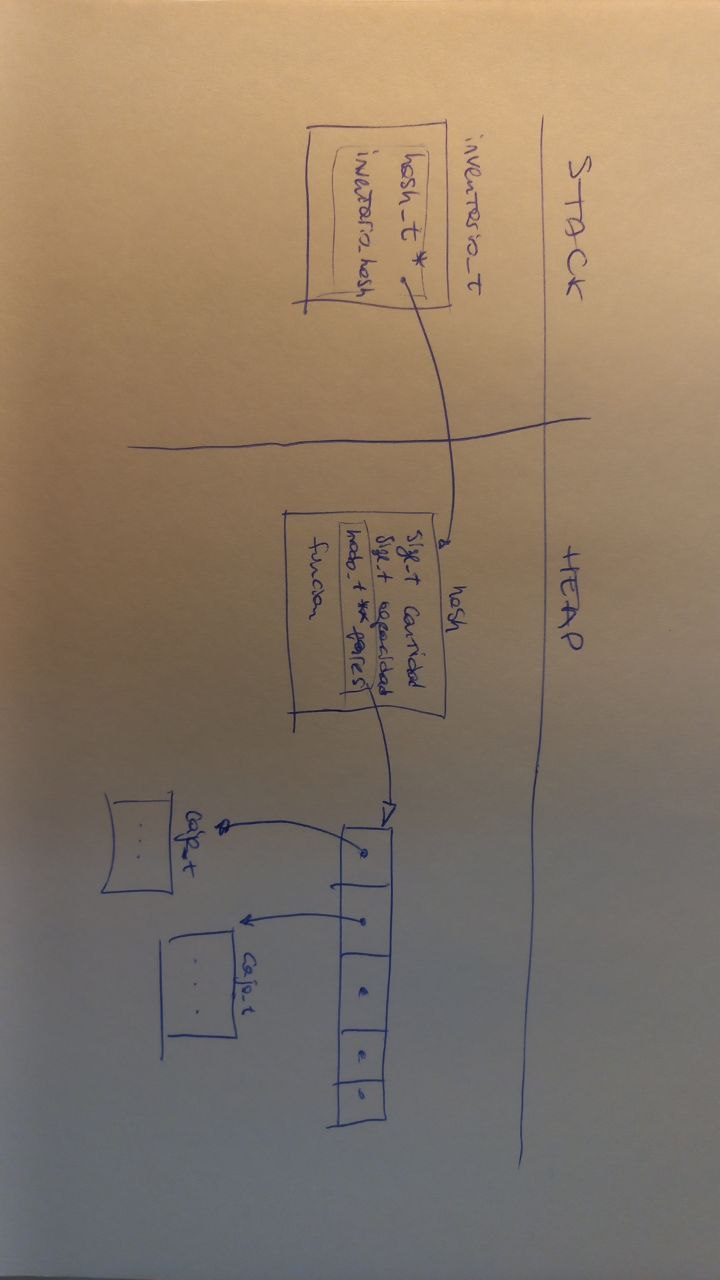 STACK
HEAP
inventario_t
hash_t *
inventario_hash
hash
size_t cantidad
size_t capacidad
nodo_t ** pares
funcion
caja_t
...
caja_t
...